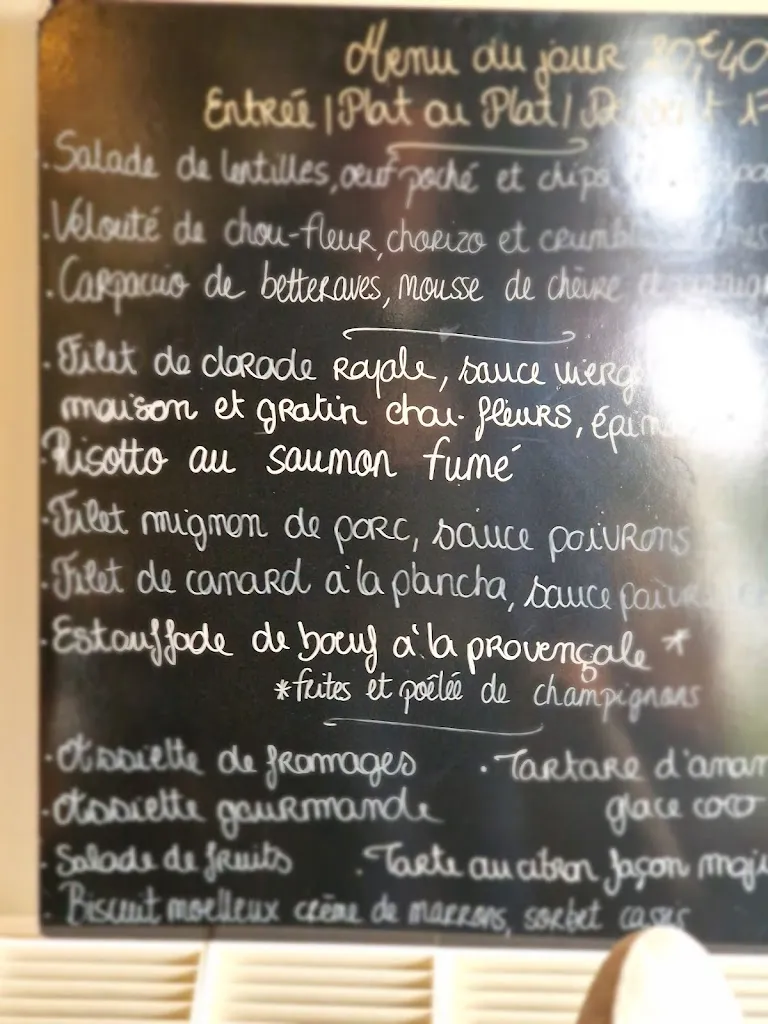 Menu du jour 20,€40
Entrée | Plat ou Plat |
. Salade de lentilles, œuf poché et chips
. Velouté de chou-fleur, chorizo et
. Carpaccio de betteraves, mousse de chèvre et
. Filet de dorade royale, sauce
maison et gratin chou-fleurs,
. Risotto au saumon fumé
. Filet mignon de porc, sauce poivrons
. Filet de canard à la plancha, sauce
. Estouffade de bœuf à la provençale *
*frites et poêlée de champignons
. Assiette de fromages . Tartare d'anan
. Assiette gourmande glace coco
. Salade de fruits . Tarte au citron façon moji
. Biscuit moelleux crème de marrons, sorbet cassis